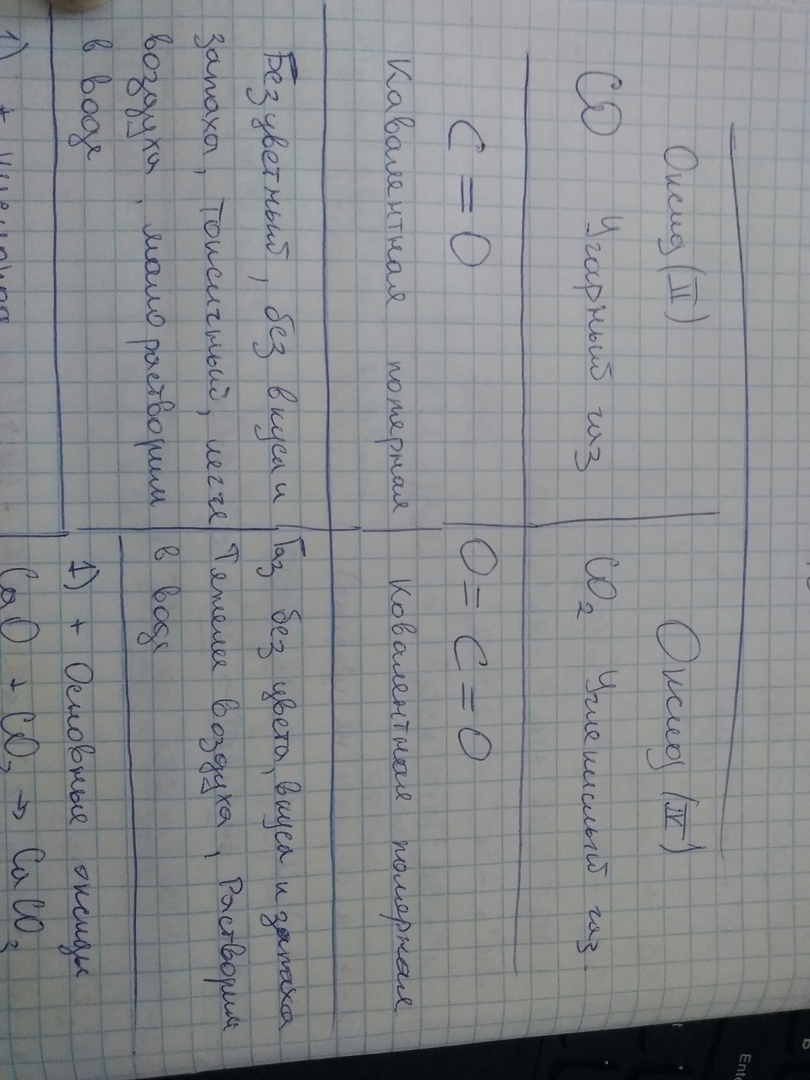 Оксид (II)
Оксид (IV)
CO Угарный газ
CO₂ Углекислый газ.
C = O
O = C = O
Кавалентная полярная
Ковалентная полярная
Безцветный, без вкуса и
запаха, токсичный, легче
воздуха, мало растворим
в воде
Газ без цвета, вкуса и запаха
Тяжелее воздуха, Растворим
в воде
1) +
1) + Основные оксиды
CaO + CO₂ → CaCO₃
Enter